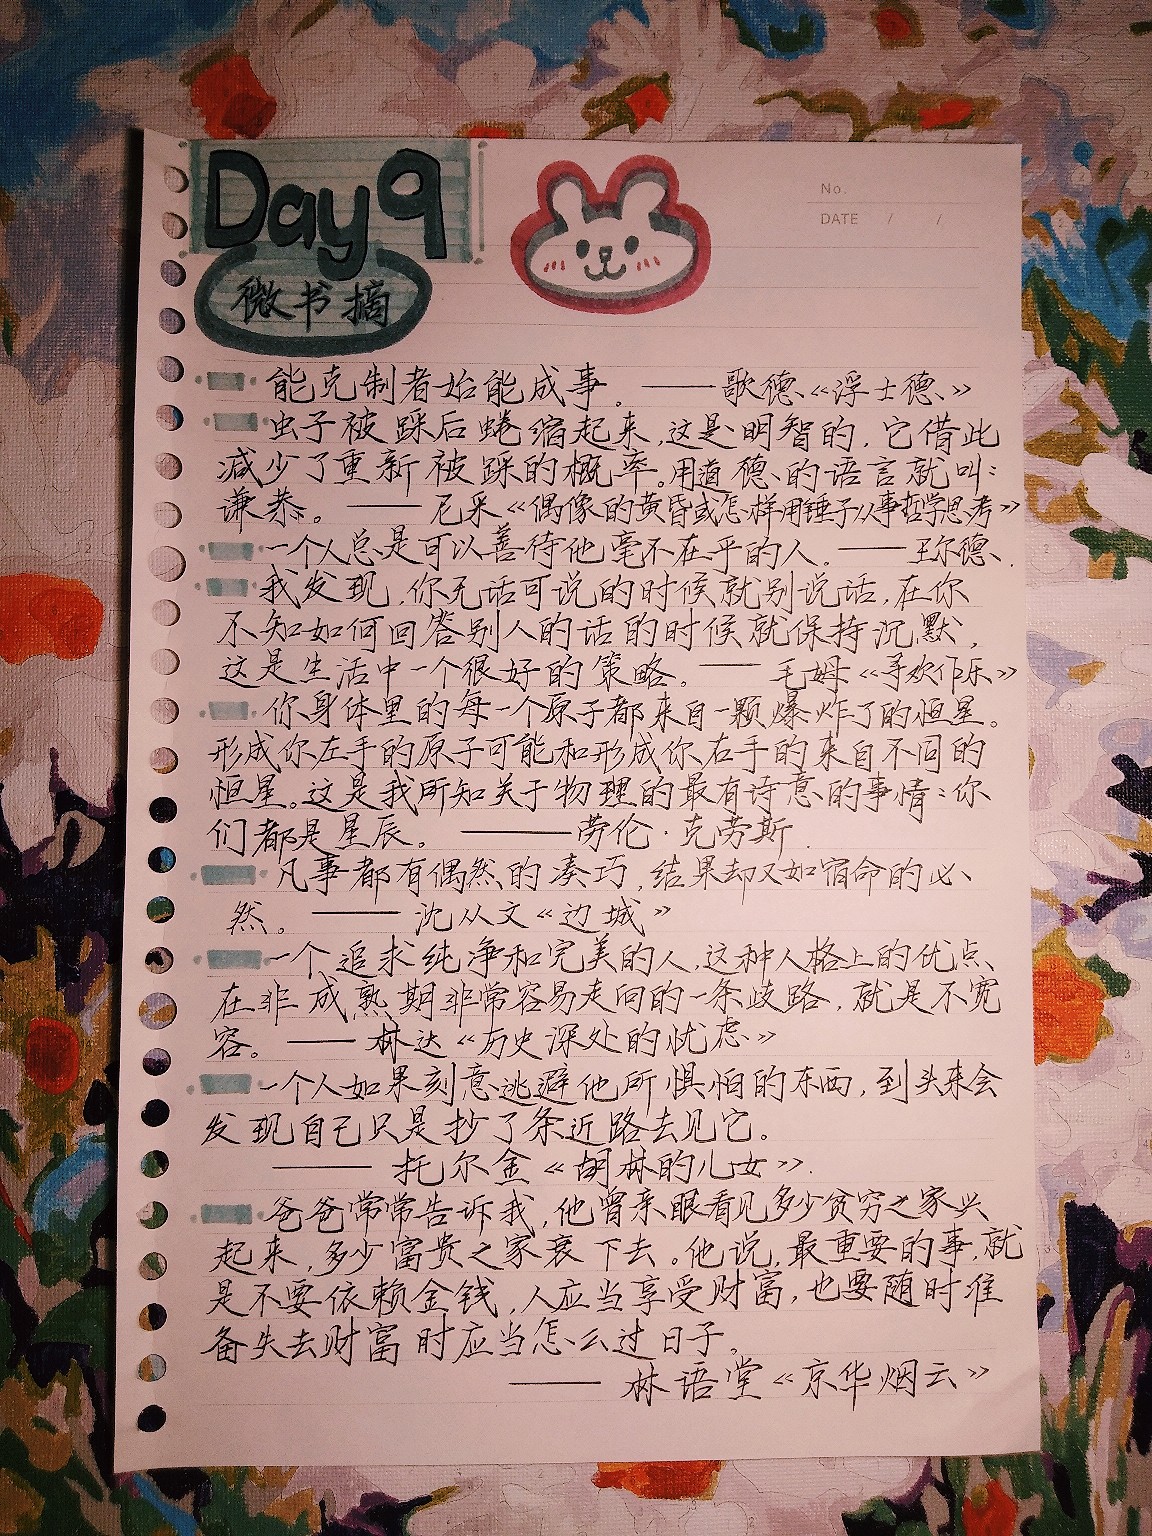 Day 9
No.
DATE / /
微书摘
能克制者始能成事。——歌德《浮士德》
虫子被踩后蜷缩起来,这是明智的,它借此
减少了重新被踩的概率。用道德的语言就叫:
谦恭。——尼采《偶像的黄昏或怎样用锤子从事哲学思考》
一个人总是可以善待他毫不在乎的人。——王尔德
我发现,你无话可说的时候就别说话,在你
不知如何回答别人的话的时候就保持沉默,
这是生活中一个很好的策略。——毛姆《寻欢作乐》
你身体里的每一个原子都来自一颗爆炸了的恒星。
形成你左手的原子可能和形成你右手的来自不同的
恒星。这是我所知关于物理的最有诗意的事情:你
们都是星辰。——劳伦·克劳斯
凡事都有偶然的凑巧,结果却又如宿命的必
然。——沈从文《边城》
一个追求纯净和完美的人,这种人格上的优点
在非成熟期非常容易走向的一条歧路,就是不宽
容。——林达《历史深处的忧虑》
一个人如果刻意逃避他所惧怕的东西,到头来会
发现自己只是抄了条近路去见它。
——托尔金《胡林的儿女》
爸爸常常告诉我,他曾亲眼看见多少贫穷之家兴
起来,多少富贵之家衰下去。他说,最重要的事,就
是不要依赖金钱,人应当享受财富,也要随时准
备失去财富时应当怎么过日子。
——林语堂《京华烟云》